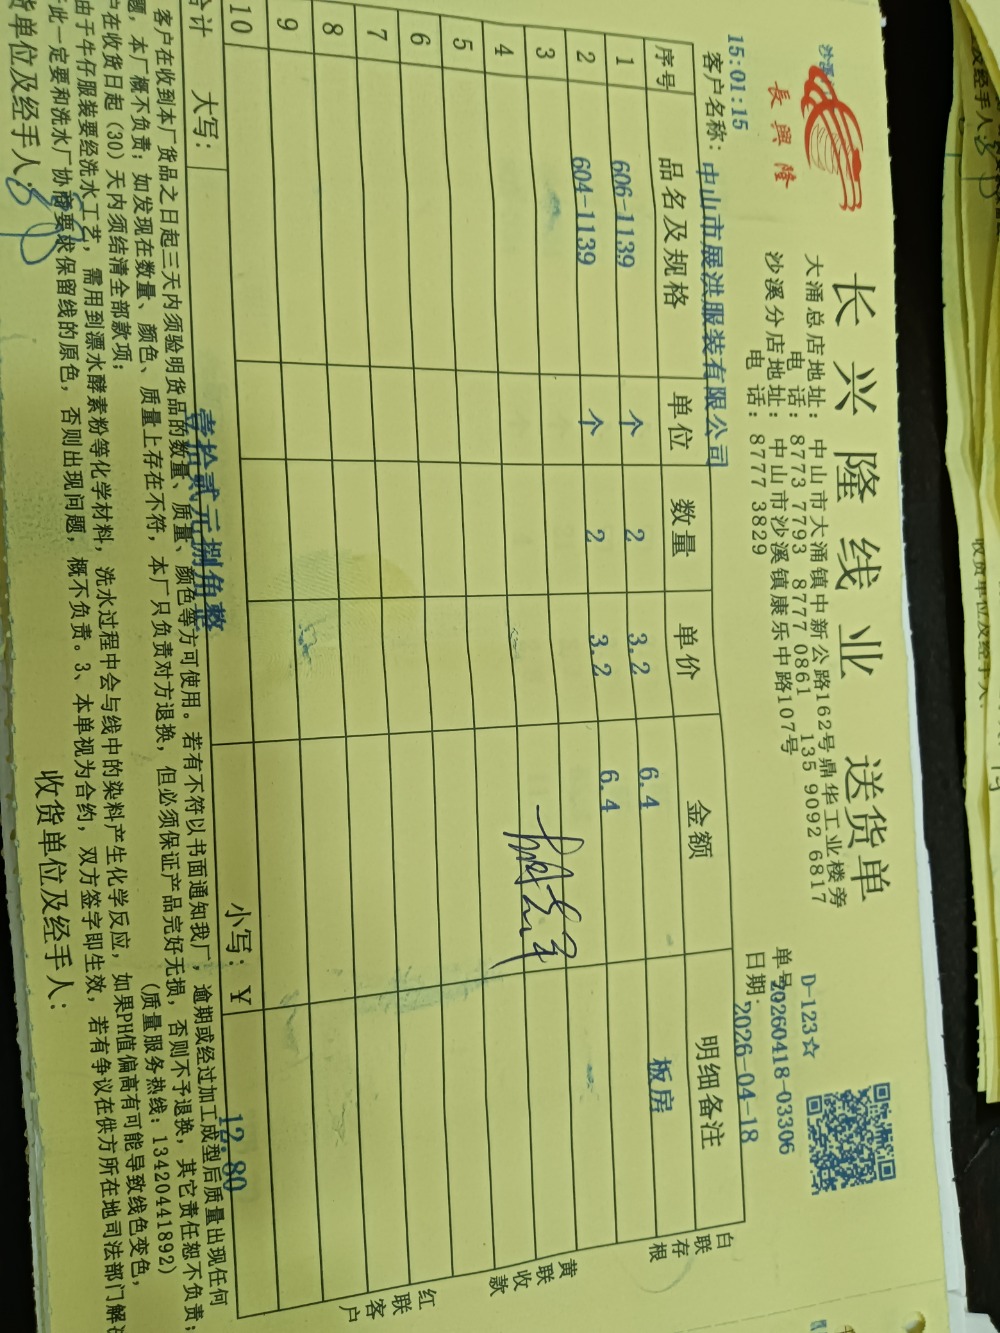 長興隆
长兴隆线业 送货单
大涌总店地址：中山市大涌镇中新公路162号鼎华工业楼旁
电话：8773 7793 8777 0861 135 9092 6817
沙溪分店地址：中山市沙溪镇康乐中路107号
电话：8777 3829
D-123☆
单号20260418-03306
日期：2026-04-18
15:01:15
客户名称：中山市展洪服装有限公司
序号 品名及规格 单位 数量 单价 金额 明细备注
1 606-1139 个 2 3.2 6.4 板房
2 604-1139 个 2 3.2 6.4
3
4
5
6
7
8
9
10
合计 大写：壹拾贰元捌角整 小写：￥12.80
白联存根
黄联收款
红联客户
客户在收到本厂货品之日起三天内须验明货品的数量、质量、颜色等方可使用。若有不符以书面通知我厂，逾期或经过加工成型后质量出现任何
题，本厂概不负责；如发现在数量、颜色、质量上存在不符，本厂只负责对方退换，但必须保证产品完好无损，否则不予退换，其它责任恕不负责；
户在收货日起（30）天内须结清全部款项；
（质量服务热线：13420441892）
由于牛仔服装要经洗水工艺，需用到漂水酵素粉等化学材料，洗水过程中会与线中的染料产生化学反应，如果PH值偏高有可能导致线色变色，
此一定要和洗水厂协商要求保留线的原色，否则出现问题，概不负责。3、本单视为合约，双方签字即生效，若有争议在供方所在地司法部门解
货单位及经手人：
收货单位及经手人：
收货单位及经手人：